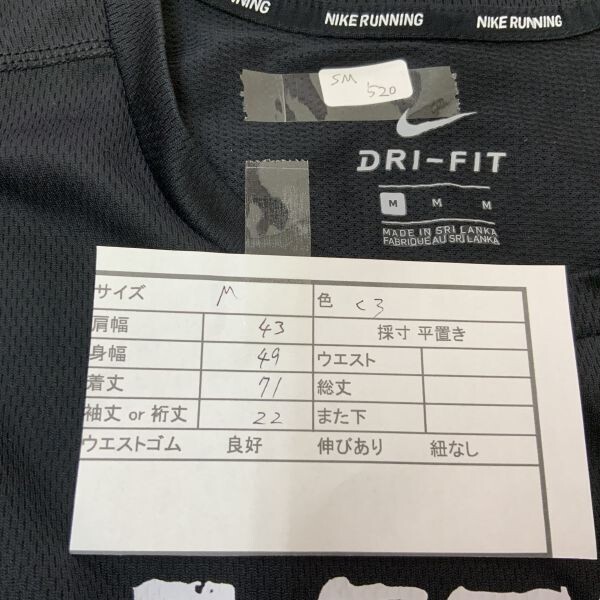 RUNNING
NIKE RUNNING
NIKE RUNNING
SM
520
DRI-FIT
M M M
MADE IN SRI LANKA
FABRIQUÉ AU SRI LANKA
サイズ M 色 くろ
肩幅 43 採寸 平置き
身幅 49 ウエスト
着丈 71 総丈
袖丈 or 裄丈 22 また下
ウエストゴム 良好 伸びあり 紐なし